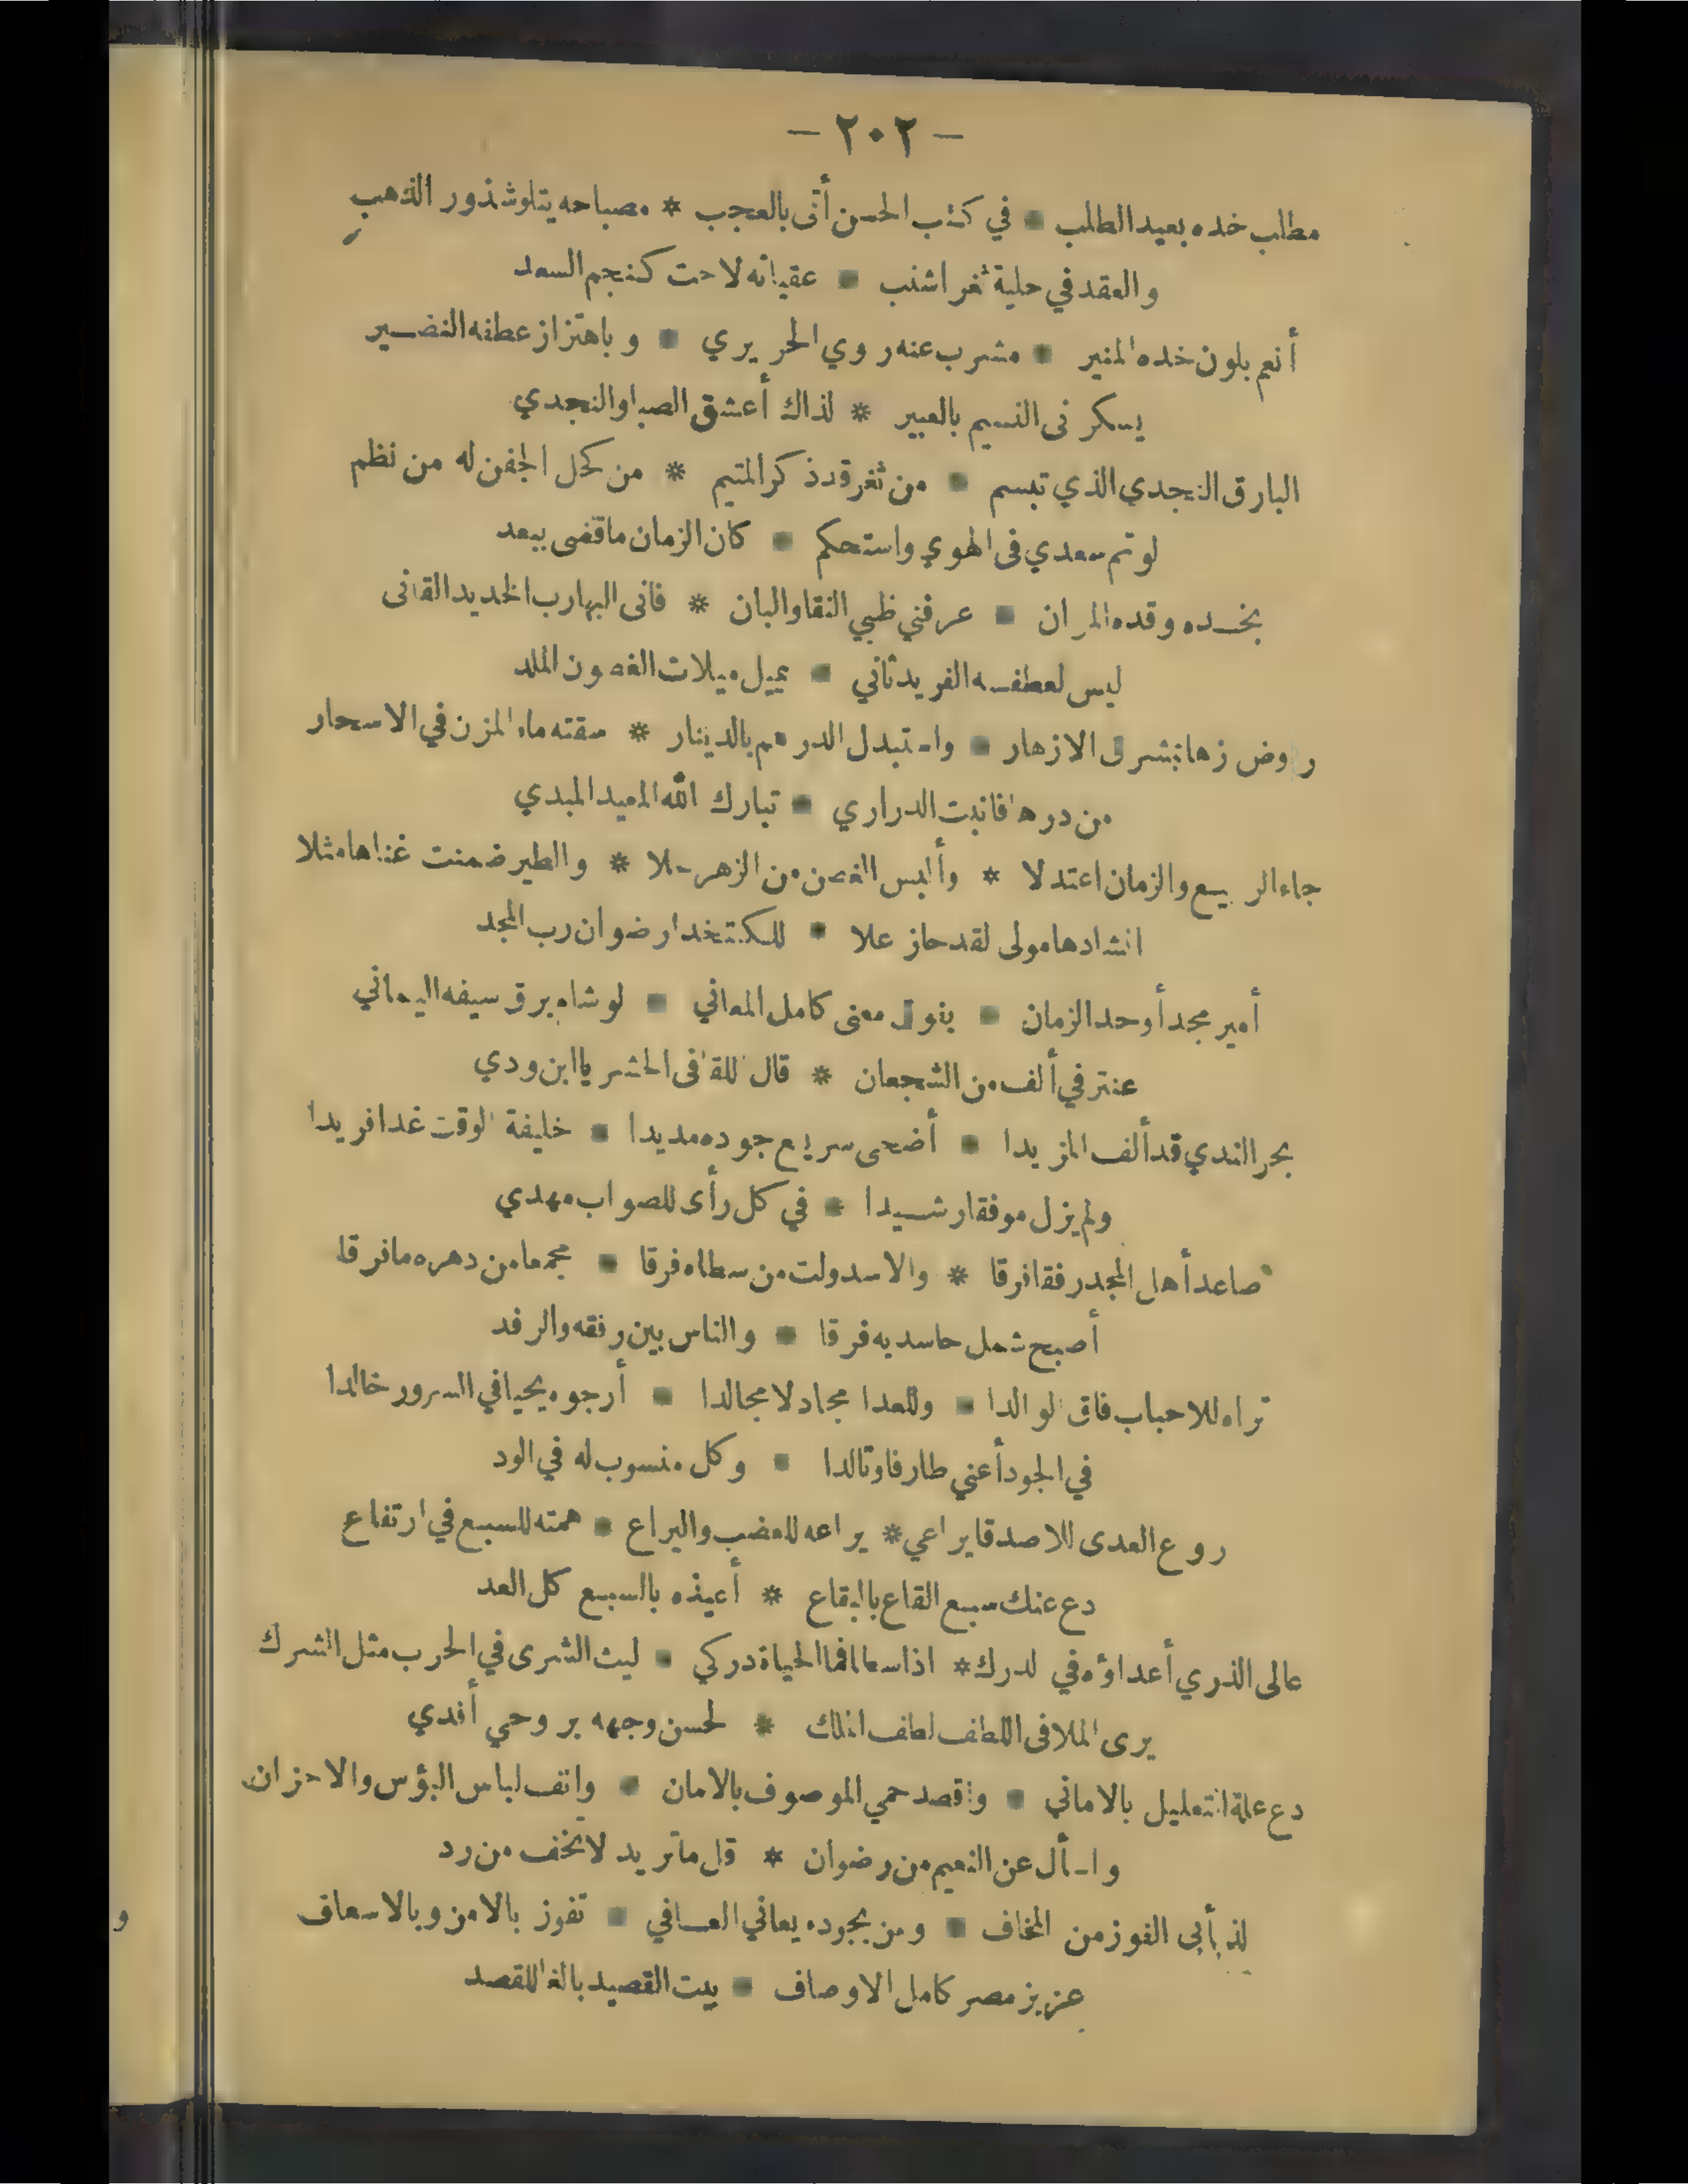 — ٢٠٢ —
مطلب خده بعيد الطلب * في كتب الحسن أتى بالعجب * مصباحه يتلو شذور الذهب
والعقد في حلية ثغر اشنب * عقيانه لاحت كنجم السعد
أنعم بلون خده المنير * مشرب عنه روي الحريري * وباهتزاز عطفه النضير
يسكر في النسيم بالعبير * لذاك أعشق الصبا والنجدي
البارق النجدي الذي تبسم * من ثغر قد ذكر المتيم * من كحل الجفن له من نظم
لو تم سعدي في الهوي واستحكم * كان الزمان ما قضى ببعد
بخده وقده المران * عرفني ظبي النقا والبان * فاني البهارب الخديد القاني
ليس لعطفه الفريد ثاني * يميل ميلات الغصون الملد
روض زها بنشر لى الازهار * واستبدل الدرهم بالدينار * سقته ماء المزن في الاسحار
من درها فانبت الدراري * تبارك الله المعيد المبدي
جاء الربيع والزمان اعتدلا * وألبس الغصن من الزهر حلا * والطير ضمنت غناها مثلا
انشادها مولى لقد حاز علا * للكتخدا رضوان رب المجد
أمير مجد أوحد الزمان * بنوال معنى كامل المعاني * لو شام برق سيفه اليماني
عنتر في ألف من الشجعان * قال للقا في الحشر يا ابن ودي
بحر الندي قد ألف المزيدا * أضحى سريع جوده مديدا * خليفة الوقت غدا فريدا
ولم يزل موفقا رشيدا * في كل رأى للصواب مهدي
صاعد أهل المجد رفقا فرقا * والاسد ولت من سطاه فرقا * مجمعا من دهره ما فرقا
أصبح شمل حاسديه فرقا * والناس بين رفقه والرفد
تراه للاحباب فاق لوالدا * وللعدا مجادلا مجالدا * أرجوه يحيا في السرور خالدا
في الجود أعني طارفا وتالدا * وكل منسوب له في الود
روع العدى للاصدقا يراعي * يراعه للعضب واليراع * همته للسبع في ارتفاع
دع عنك سبع القاع بالبقاع * أعيذه بالسبع كل العد
عالى الذري أعداؤه في لدرك * اذا سعا فما الحياة دركي * ليث الشرى في الحرب مثل الشرك
يرى الملا في اللطف لطف الملك * لحسن وجهه بروحي أفدي
دع علة التعليل بالاماني * واقصد حمي الموصوف بالامان * وانف لباس البؤس والاحزان
واسأل عن النعيم من رضوان * قل ما تريد لا تخف من رد
لذ بأبى الفوز من المخاف * ومن بجوده يعاني العافي * تفوز بالامن وبالاسعاف
عزيز مصر كامل الاوصاف * بيت القصيد بالغا للقصد
و